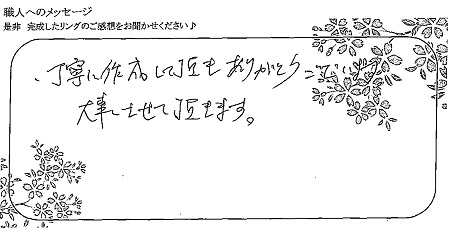 職人へのメッセージ
是非 完成したリングのご感想をお聞かせください♪
丁寧に作成して頂きありがとうございます
大事にさせて頂きます。